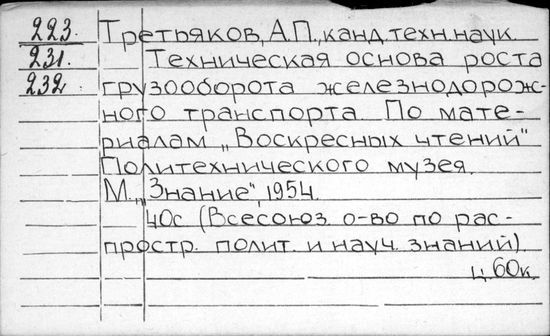 223. Третьяков, А.П., канд. техн. наук
231. Техническая основа роста
232. грузооборота железнодорож-
ного транспорта. По мате-
риалам „Воскресных чтений"
Политехнического музея.
М., „Знание", 1954.
40с (Всесоюз. о-во по рас-
простр. полит. и науч. знаний).
ц. 60к.